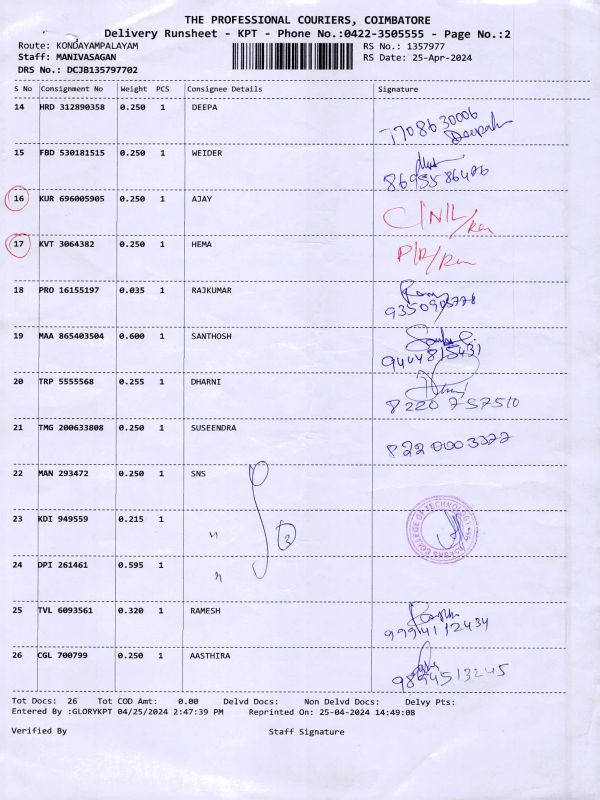 THE PROFESSIONAL COURIERS, COIMBATORE
Delivery Runsheet - KPT - Phone No.:0422-3505555 - Page No.:2
Route: KONDAYAMPALAYAM RS No.: 1357977
Staff: MANIVASAGAN RS Date: 25-Apr-2024
DRS No.: DCJB135797702
S No Consignment No Weight PCS Consignee Details Signature
14 HRD 312890358 0.250 1 DEEPA
7708630006
Deepak
15 FBD 530181515 0.250 1 WEIDER
8695586476
16 KUR 696005905 0.250 1 AJAY
C/N/L/Ren
17 KVT 3064382 0.250 1 HEMA
P/R/Ren
18 PRO 16155197 0.035 1 RAJKUMAR
9350905778
19 MAA 865403504 0.600 1 SANTHOSH
9444815431
20 TRP 5555568 0.255 1 DHARNI
8220757510
21 TMG 200633808 0.250 1 SUSEENDRA
8220003377
22 MAN 293472 0.250 1 SNS
23 KDI 949559 0.215 1 " 3
COLLEGE OF TECHNOLOGY
24 DPI 261461 0.595 1 "
25 TVL 6093561 0.320 1 RAMESH
9994112434
26 CGL 700799 0.250 1 AASTHIRA
9894513245
Tot Docs: 26 Tot COD Amt: 0.00 Delvd Docs: Non Delvd Docs: Delvy Pts:
Entered By :GLORYKPT 04/25/2024 2:47:39 PM Reprinted On: 25-04-2024 14:49:08
Verified By Staff Signature